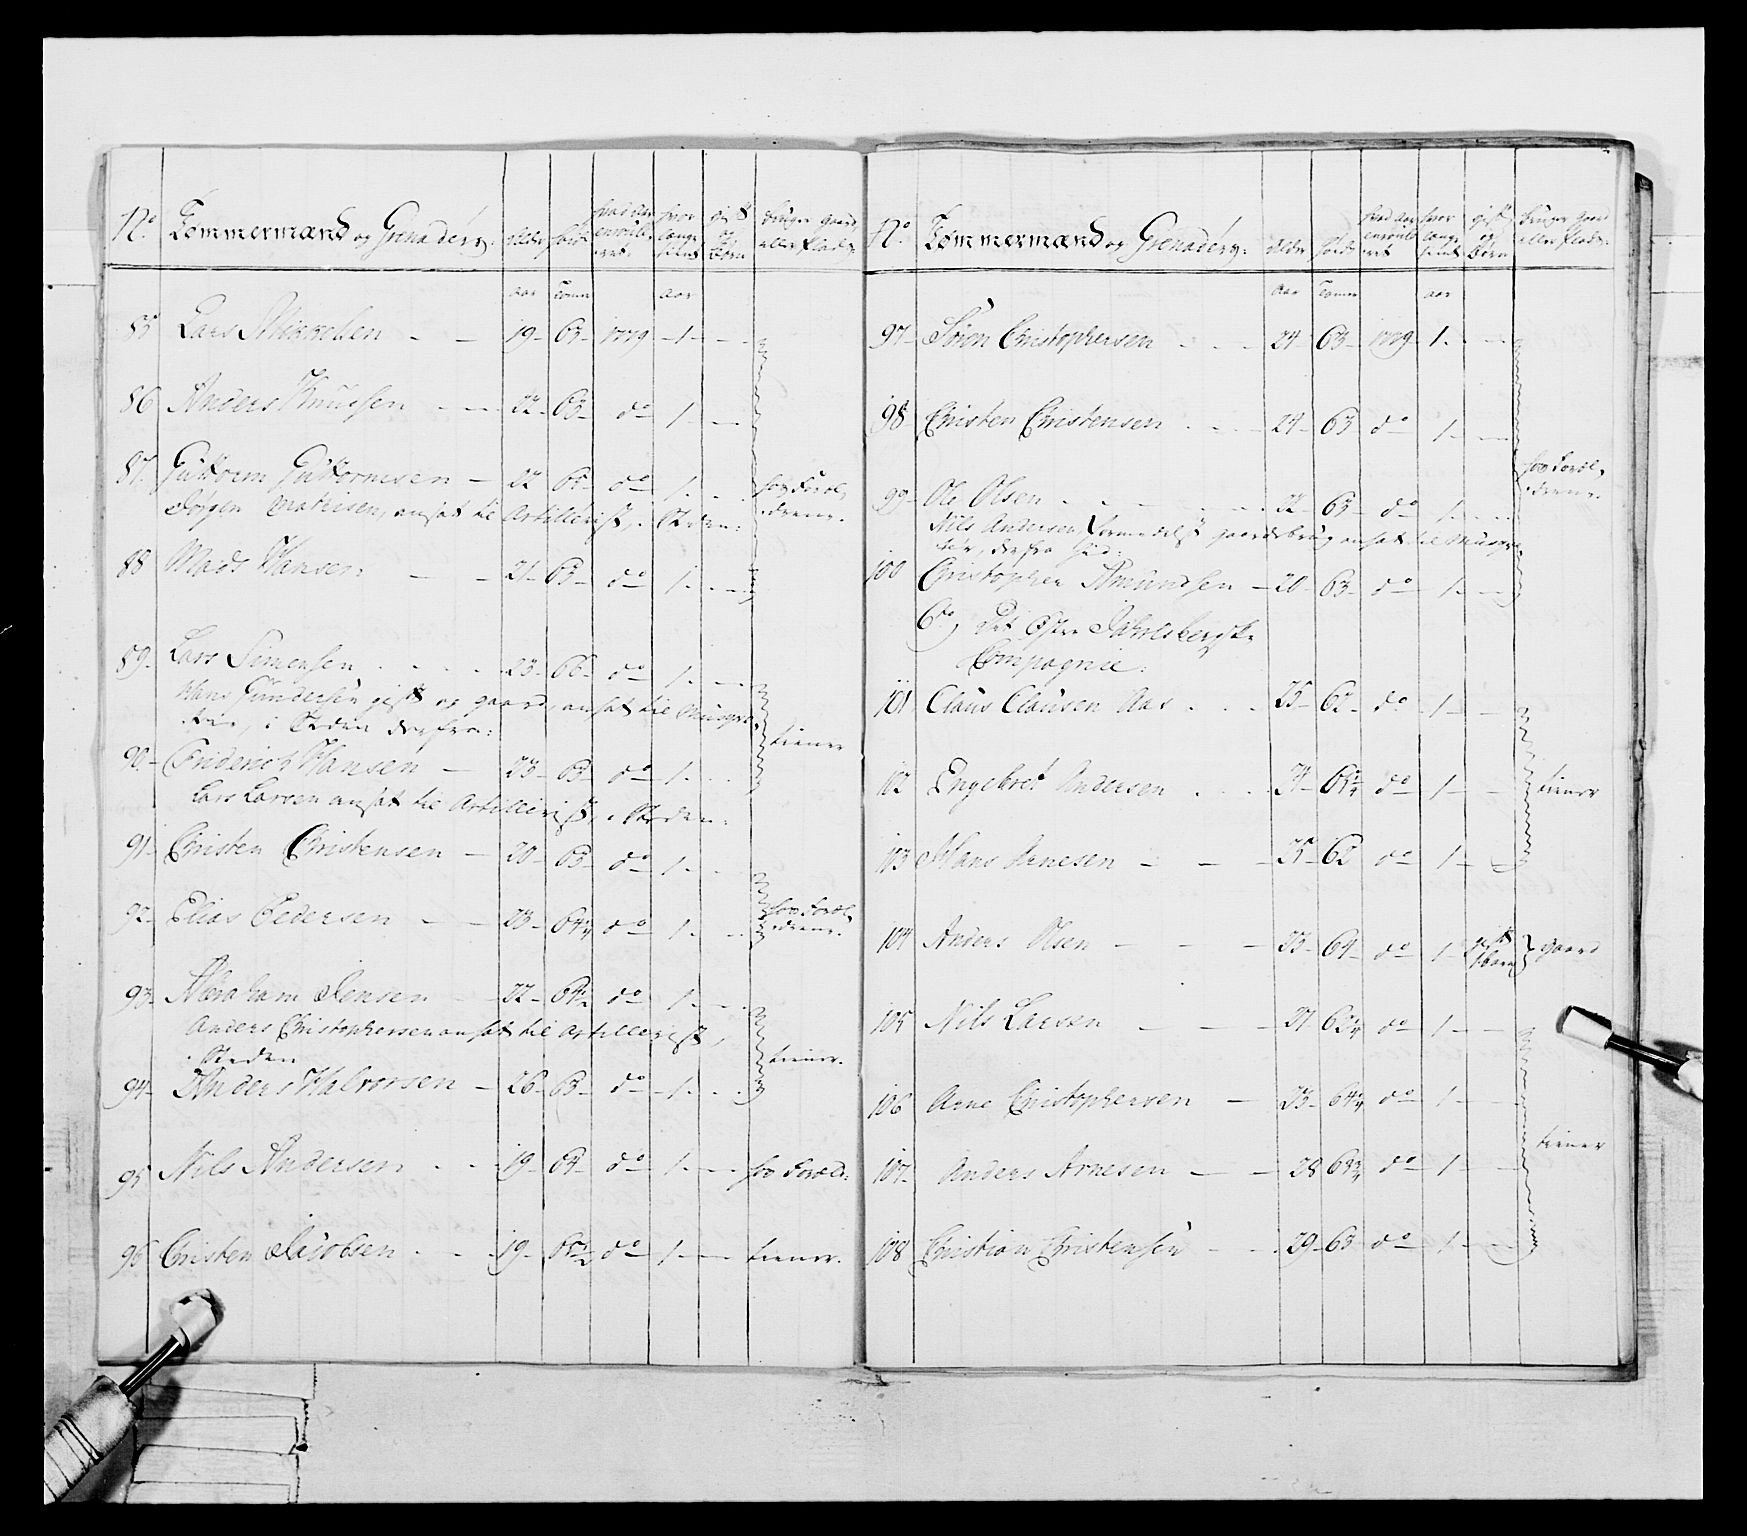 No. Tømmermænd og Grenaderer: Alder høide hvad Aar enroulleret. hvor lange tient gift og Børn bruger gaard eller Plads.
aar Tomm aar
85 Lars Mikkelsen - - 19- 63- 1779 -1- - -
86 Anders Knudsen - - 22- 63- do 1. - -
87. Guttorm Guttormsen - 22 65- do 1. - - hos Foræl-
Jørgen Mathisen, ansat til Artillerist, i Steden: drene.
88 Mads Hansen - - 21- 63- do 1. - -
89- Lars Simensen . . . . 23- 66- do 1. - -
Hans Gundersen gift og gaard, ansat til Musqve-
teer, i Steden derfra:
tiener
90- Friderich Hansen - 23- 63- do 1. - -
Lars Larsen ansat til Artillerist, i Steden:
91- Christen Christensen - 20- 63- do 1. - -
92- Elias Pedersen - - 23- 64¼ do 1. - - hos Foræl-
drene.
93- Abraham Jensen - - 22- 64½ do 1. - -
Anders Christophersen ansat til Artillerist,
i Steden tiener.
94- Anders Halvorsen - 26- 63- do 1. - -
95 Nils Andersen . - - 19- 64- do 1. - - hos Foræld:
96 Christen Jacobsen . - - 19- 65½ do 1. - - tiener.
No. Tømmermænd og Grenaderer: Alder høide hvad Aar enroulleret hvor lange tient gift og Børn bruger gaard eller Plads:
Aar Tomm aar
97- Søren Christophersen . - - 24- 63- 1779 1. - -
98- Christen Christensen . - - 24- 63 do 1. - -
hos Foræl-
99- Ole Olsen . - - 22- 63- do 1. - - drene.
Nils Andersen formedelst gaardsbrug ansat til Musqve-
teer, derfra hid:
100 Christopher Amundsen - 20- 63- do 1. - -
6to, Det Østre Jahrlsbergske
Compagnie:
101 Claus Clausen Aas . . . 25- 62- do 1 - -
102 Engebret Andersen . . . 21- 63¼ do 1 - - tiener
103 Hans Arnesen - - - 25- 62 do 1 - -
104 Anders Olsen - - - 33- 64- do 1- gift 1 barn } gaard
105 Nils Larsen - - - 21 63¼ do 1 - -
106 Arne Christophersen - 23- 64¼ do 1 - -
tiener
107- Anders Arnesen - - 28 63¾ do 1 - -
108 Christian Christensen - - 29- 63- do 1 - -